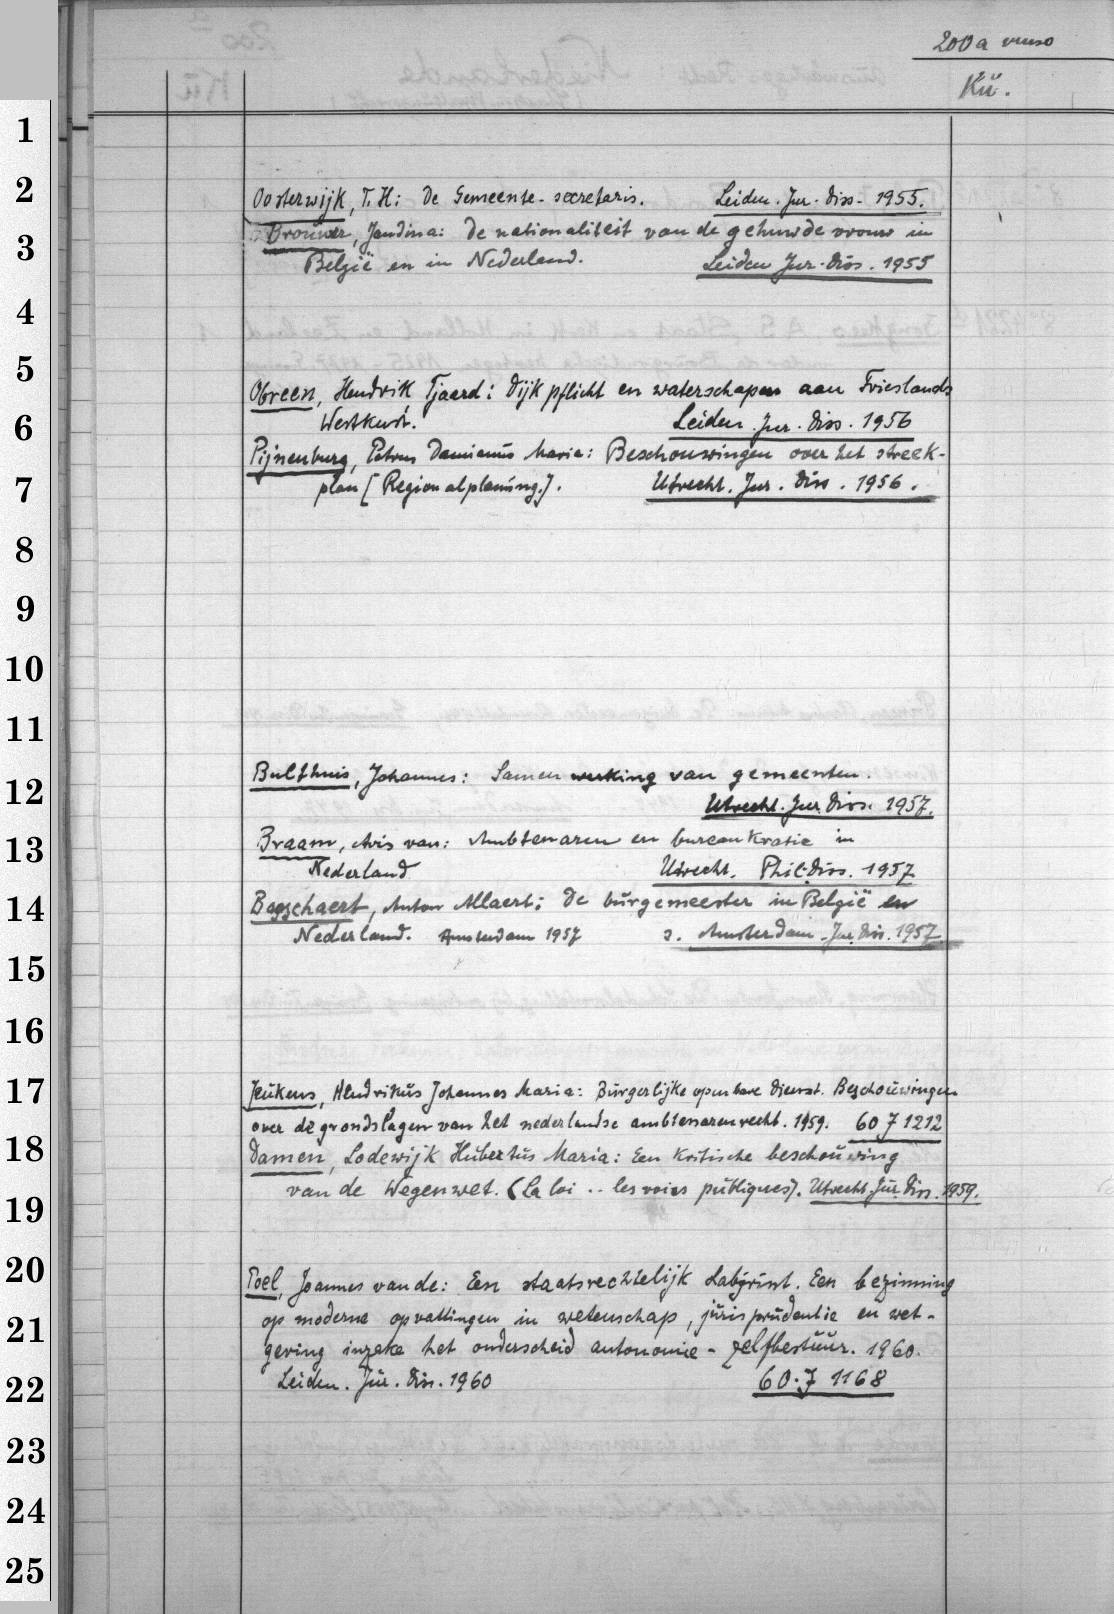 200a verso
Kü.
1
2
Oosterwijk, T. H: De Gemeente-secretaris. Leiden. Jur. Diss- 1955.
3
Brouwer, Jandina: De nationaliteit van de gehuwde vrouw in
België en in Nederland. Leiden Jur. Diss. 1955
4
5
Obreen, Hendrik Tjaard: Dijkpflicht en waterschapen aan Frieslands
6
Westkust. Leiden. Jur. Diss. 1956
Pijnenburg, Petrus Damianus Maria: Beschouwingen over het streek-
7
plan [Regionalplanung.]. Utrecht. Jur. Diss. 1956.
8
9
10
11
Bulthuis, Johannes: Samenwerking van gemeenten.
12
Utrecht. Jur. Diss. 1957.
13
Braam, Aris van: Ambtenaren en bureaukratie in
Nederland Utrecht. Phil. Diss. 1957
14
Bogschaert, Anton Allaert: De burgemeester in België en
Nederland. Amsterdam 1957 s. Amsterdam-Jur. Diss. 1957
15
16
17
Jeukens, Hendrikus Johannes Maria: Burgerlijke openbare dienst. Beschouwingen
over de grondslagen van het nederlandse ambtenarenrecht. 1959. 60 J 1212
18
Damen, Lodewijk Hubertus Maria: Een kritische beschouwing
van de Wegenwet. (La loi .. les voies publiques). Utrecht. Jur. Diss. 1959.
19
20
Poel, Joannes van de: Een staatsrechtelijk Labyrint. Een bezinning
op moderne opvattingen in wetenschap, jurisprudentie en wet-
21
geving inzake het onderscheid autonomie - zelfbestuur. 1960.
22
Leiden. Jur. Diss. 1960 60. J 1168
23
24
25